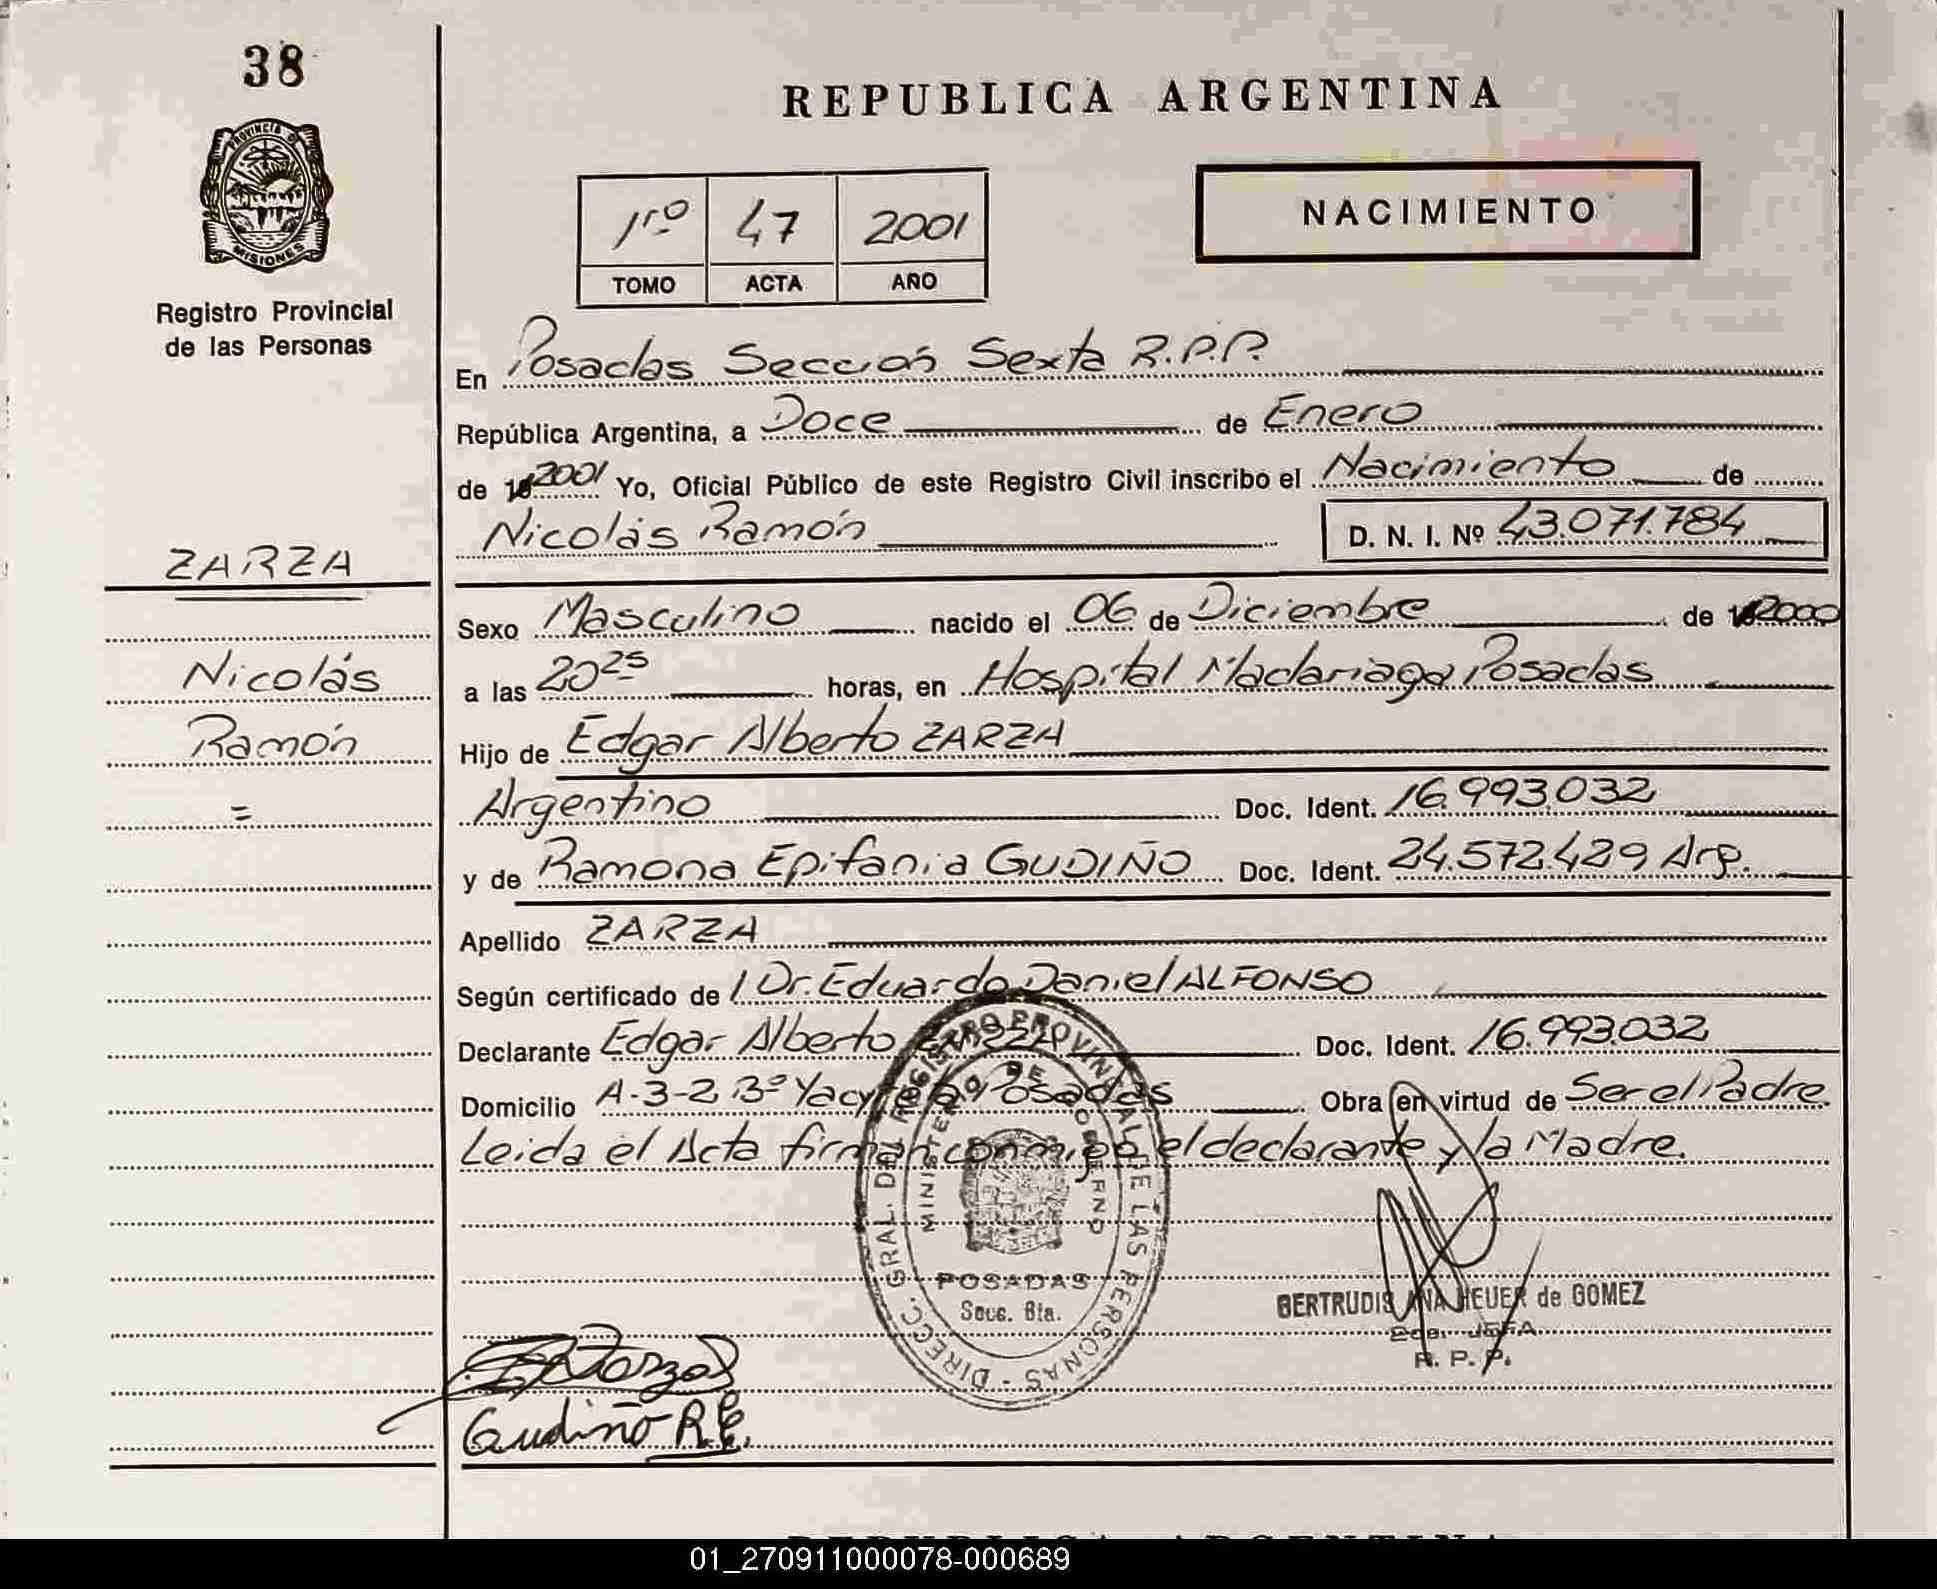 38
REPUBLICA ARGENTINA
PROVINCIA DE
MISIONES
Registro Provincial
de las Personas
1ro 47 2001
TOMO ACTA AÑO
NACIMIENTO
En Posadas Sección Sexta R.P.P.
República Argentina, a Doce de Enero
de 2001 Yo, Oficial Público de este Registro Civil inscribo el Nacimiento de
Nicolás Ramón D. N. I. Nº 43.071.784
ZARZA
Nicolás
Ramón
=
Sexo Masculino nacido el 06 de Diciembre de 2000
a las 20 25 horas, en Hospital Madariaga Posadas
Hijo de Edgar Alberto ZARZA
Argentino Doc. Ident. 16.993.032
y de Ramona Epifania GUDIÑO Doc. Ident. 24.572.429 Arg.
Apellido ZARZA
Según certificado de / Dr. Eduardo Daniel ALFONSO
Declarante Edgar Alberto ZARZA Doc. Ident. 16.993.032
Domicilio A-3-2 3º Yacyreta Posadas Obra en virtud de Ser el Padre.
Leida el Acta firman conmigo el declarante y la Madre.
DIRECC. GRAL. DEL REGISTRO PROVINCIAL DE LAS PERSONAS -
MINISTERIO DE GOBIERNO
POSADAS
Secc. 6ta.
GERTRUDIS ANA HEUER de GOMEZ
JEFA
R. P. P.
Gudiño R.E.
REPUBLICA ARGENTINA
01_270911000078-000689